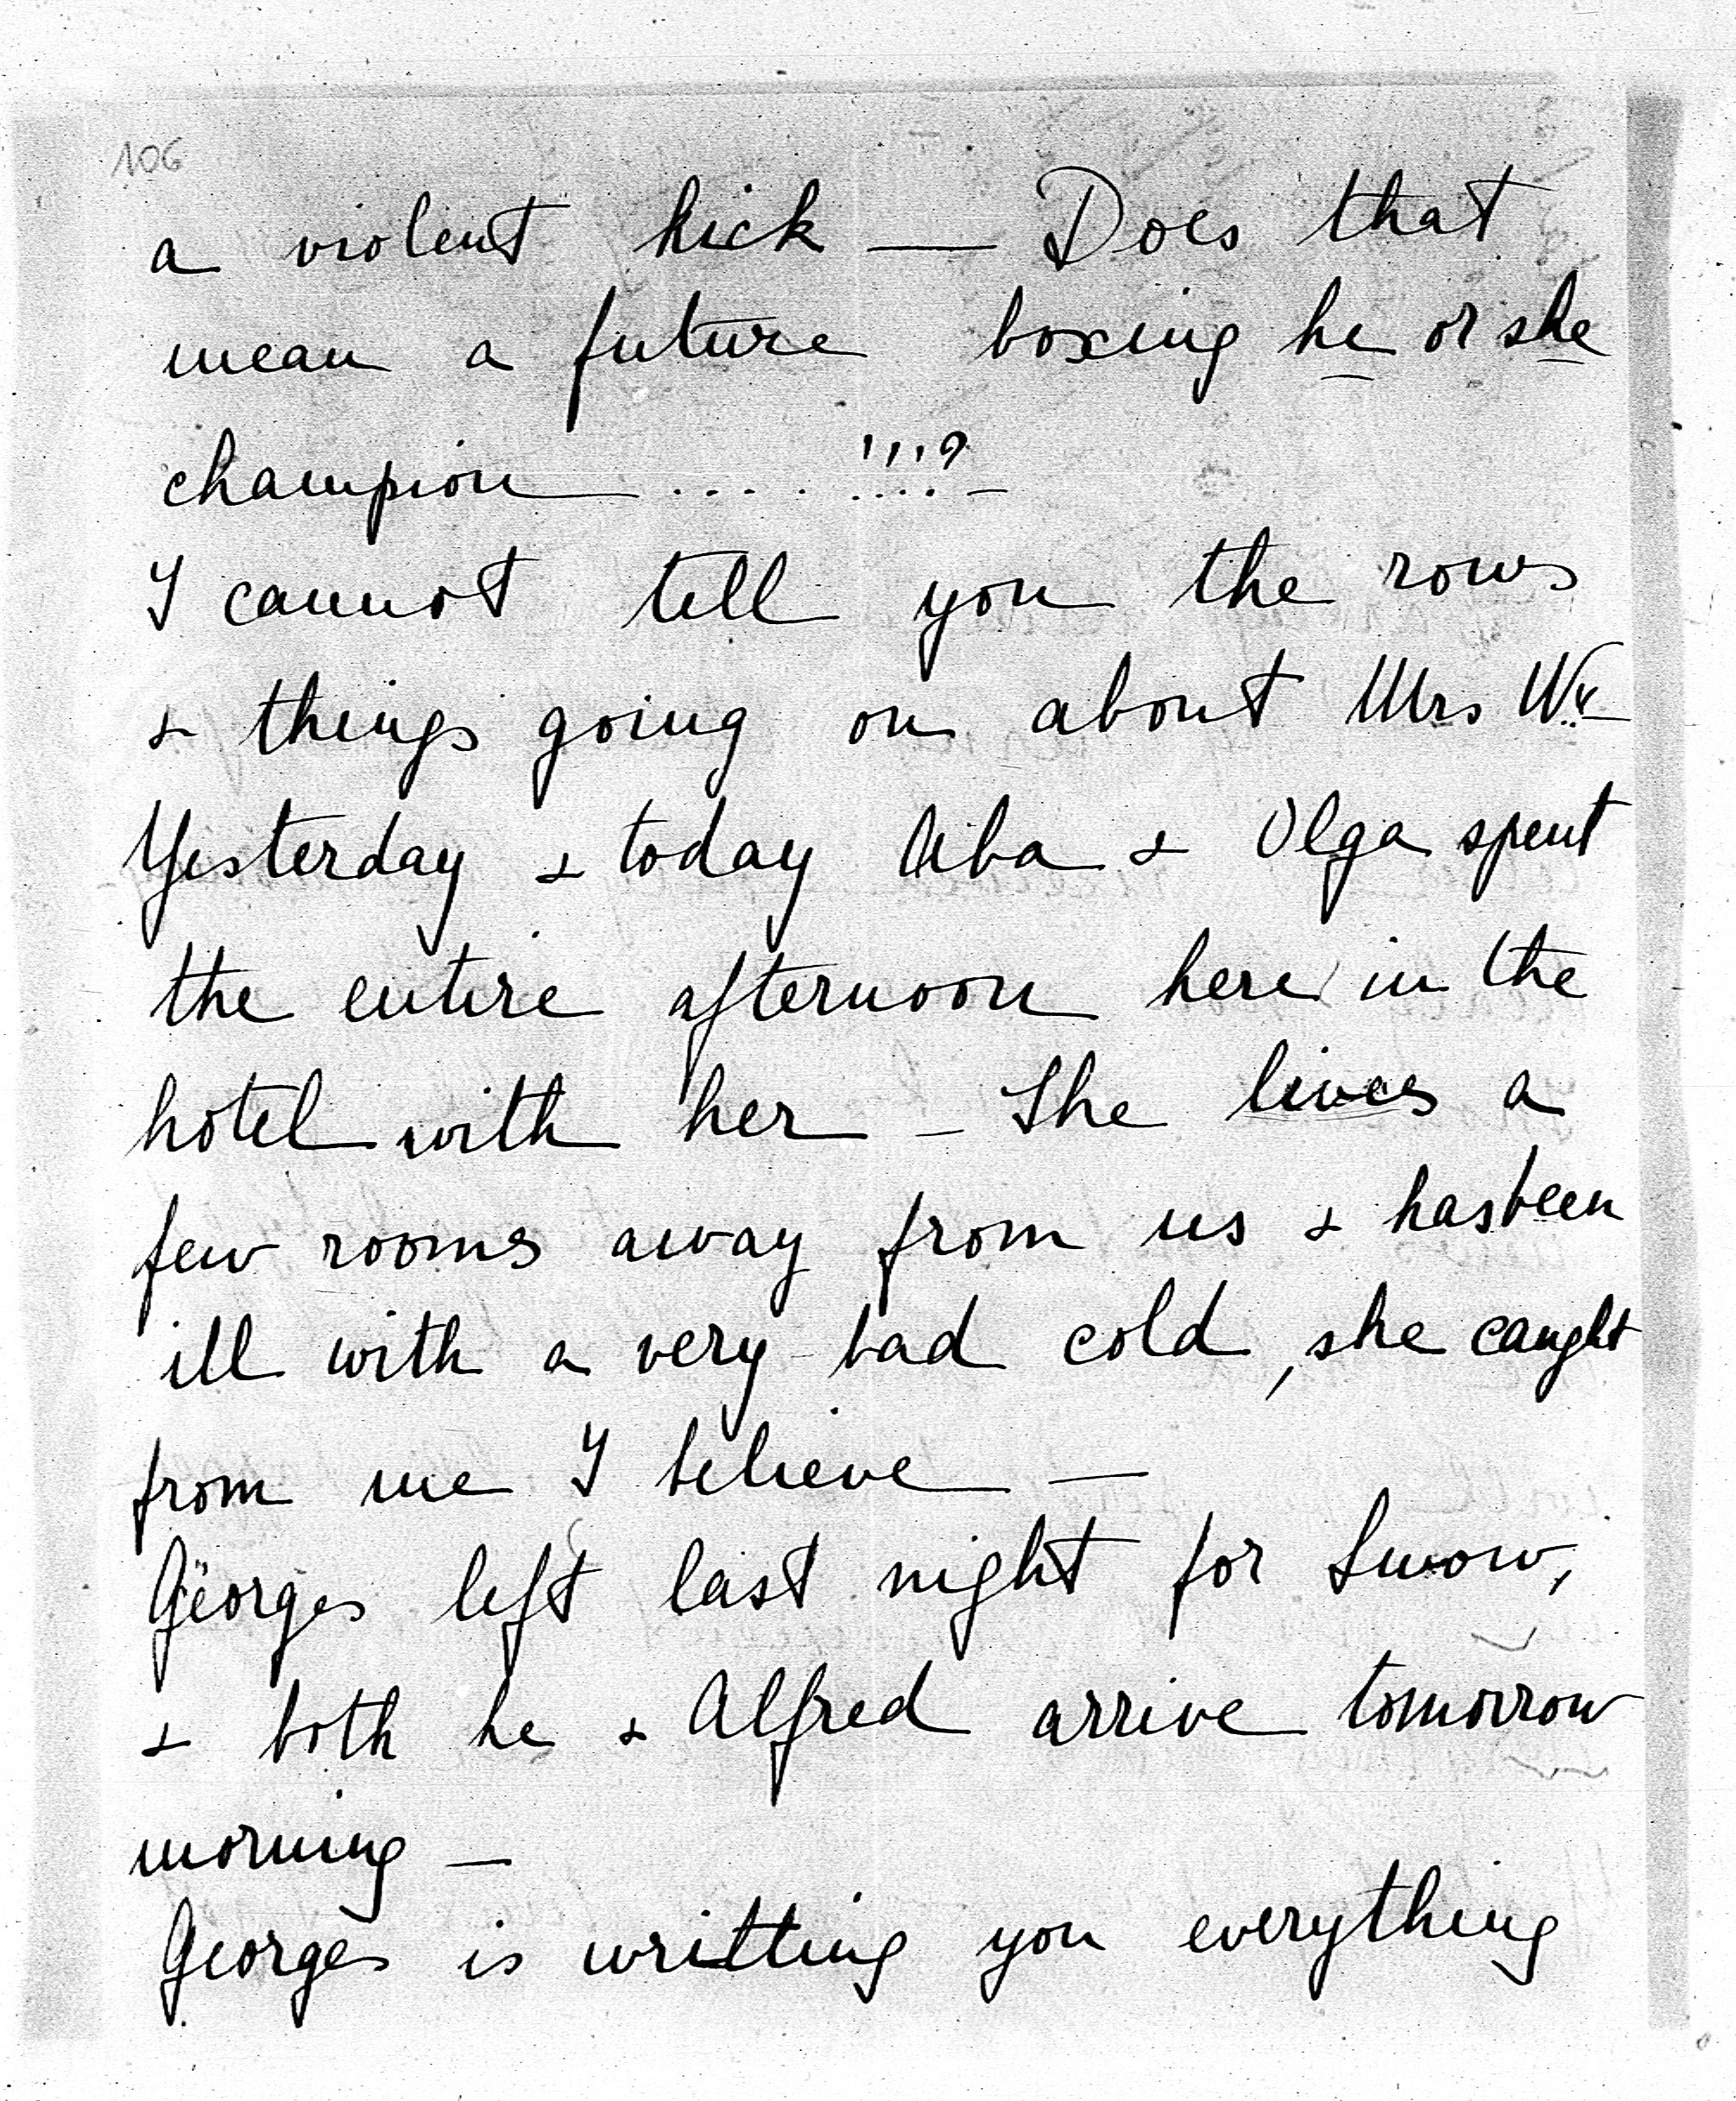 106
a violent kick — Does that
mean a future boxing he or she
champion — .... !!!? –
I cannot tell you the rows
& things going on about Mrs W..
Yesterday & today Aba & Olga spent
the entire afternoon here in the
hotel with her – She lives a
few rooms away from us & has been
ill with a very bad cold, she caught
from me I believe —
Georges left last night for Lwow,
& both he & Alfred arrive tomorrow
morning –
Georges is writting you everything